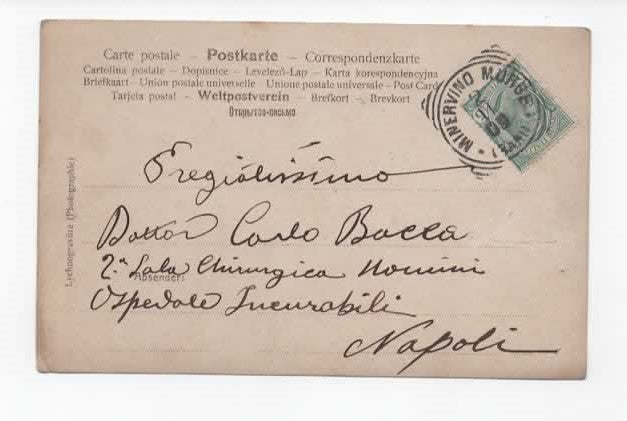 Carte postale — Postkarte — Correspondenzkarte
Cartolina postale — Dopisnice — Levelező-Lap — Karta korespondencyjna
Briefkaart — Union postale universelle — Unione postale universale — Post Card
Tarjeta postal — Weltpostverein — Brefkort — Brevkort
Открытое письмо
MINERVINO MURGE
Pregiatissimo
Dottor Carlo Bacca
2.a Sala Chirurgica Uomini
Absender:
Ospedale Incurabili
Napoli
Lychnogravüra (Photographie)